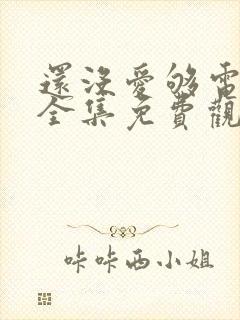 還沒愛够電
全集免費觀
咔咔西小姐